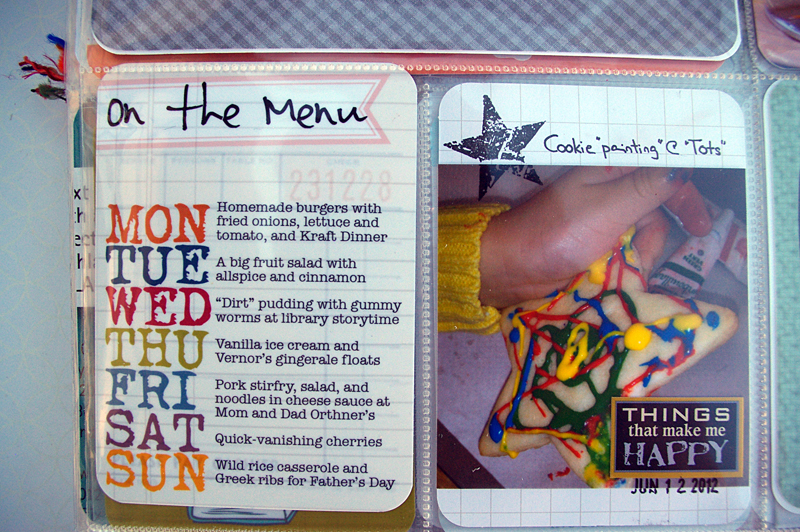 on the Menu
231228
MON
Homemade burgers with
fried onions, lettuce and
tomato, and Kraft Dinner
TUE
A big fruit salad with
allspice and cinnamon
WED
“Dirt” pudding with gummy
worms at library storytime
THU
Vanilla ice cream and
Vernor's gingerale floats
FRI
Pork stirfry, salad, and
noodles in cheese sauce at
Mom and Dad Orthner's
SAT
Quick-vanishing cherries
SUN
Wild rice casserole and
Greek ribs for Father's Day
Cookie "painting" @ "Tots"
THINGS
that make me
HAPPY
JUN 12 2012